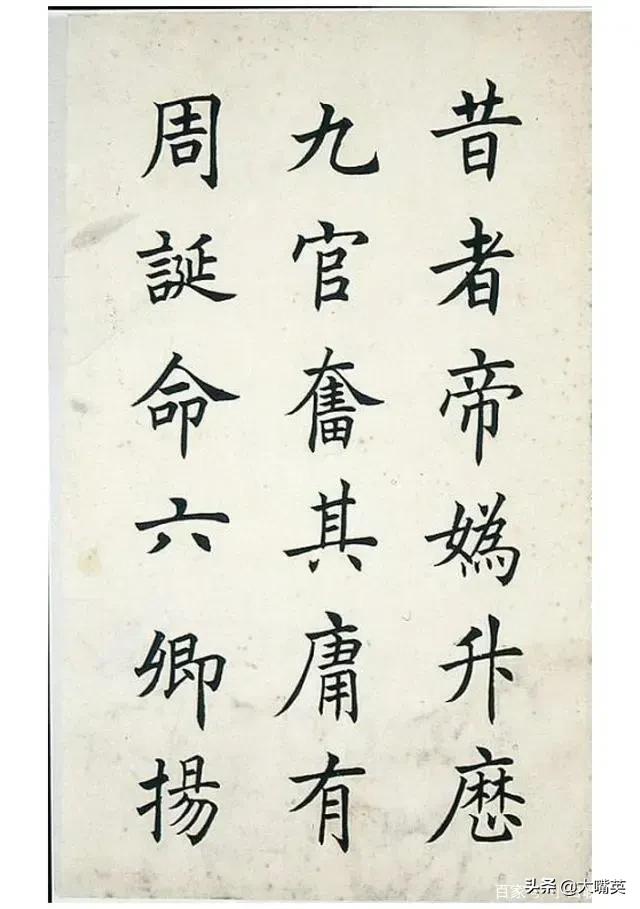 昔者帝媯升歴
九官奮其庸有
周誕命六卿揚
头条 @大嘴英
百家号